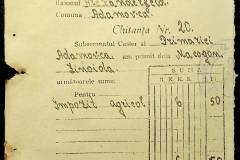 Raionul Alexanderfeld
Comuna Adamovca
Chitanța Nr. 20.
Subsemnatul Casier al Primăriei
Adamovca am primit dela Macogon
Zinoida
următoarele sume:
SUMA
Pentru
Impozit agricol 6 50
6 50